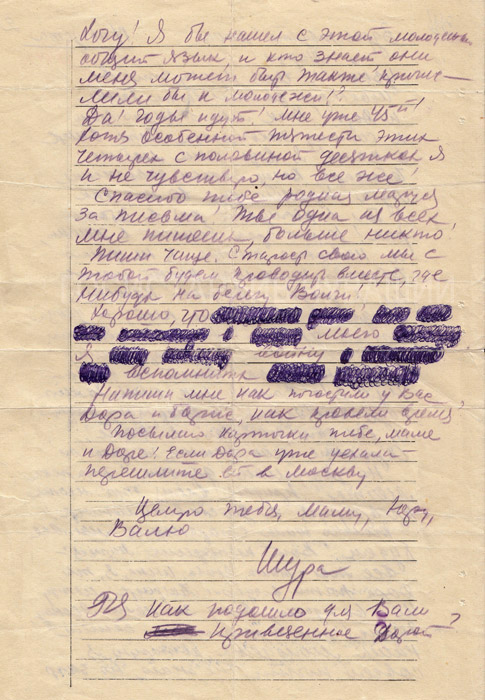 Хочу! Я бы нашел с этой молодежью
общий язык, и кто знает они
меня может быть также причис-
лили бы к молодежи!?
Да! Годы идут! мне уже 45т!
Хотя особенной тяжести этих
четырех с половиной десятков я
и не чувствую, но все же!
Спасибо тебе родная Маруся
за письма! Ты одна из всех
мне пишешь, больше никто!
Пиши чаще. Старость свою мы с
тобой будем проводить вместе, где
нибудь на берегу Волги!
Хорошо, что
много
Я войну
вспоминти
Напиши мне как погостили у вас
Дора и как провели время,
Посылаю карточки тебе, маме
и Доре! Если Дора уже уехала -
перешлите ей в Москву
Целую тебя, маму,
Валю
Шура
Как подошло для Вали
привезенное Дорой?